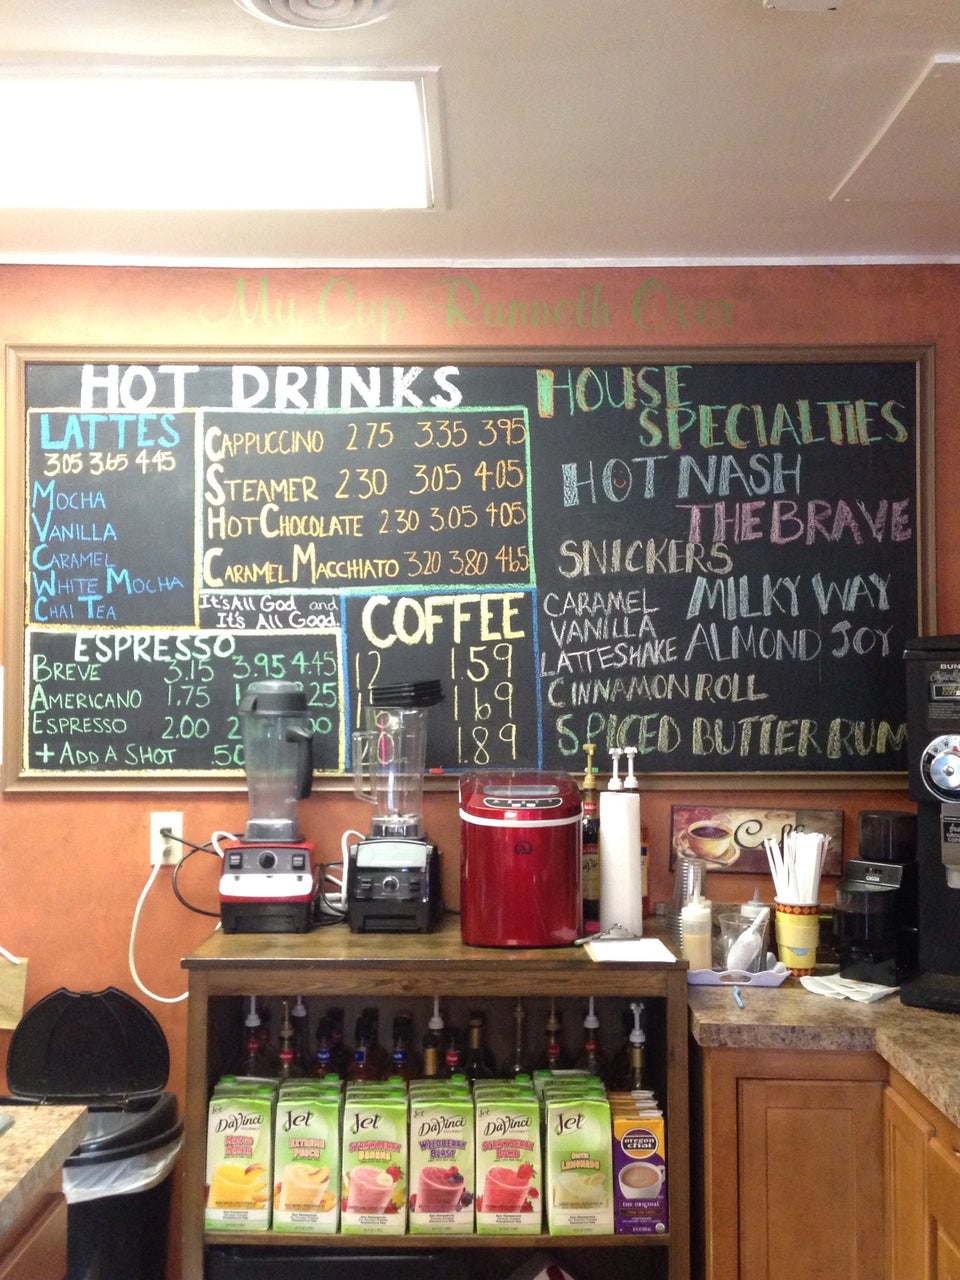 My Cup Runneth Over
HOT DRINKS
LATTES
305 3.65 4.45
MOCHA
VANILLA
CARAMEL
WHITE MOCHA
CHAI TEA
CAPPUCCINO 2.75 3.35 3.95
STEAMER 2.30 3.05 4.05
HOT CHOCOLATE 2.30 3.05 4.05
CARAMEL MACCHIATO 3.20 3.80 4.65
It's All God and
It's All Good.
ESPRESSO
BREVE 3.15 3.95 4.45
AMERICANO 1.75
ESPRESSO 2.00
+ ADD A SHOT .50
COFFEE
12 1.59
1.69
20 1.89
HOUSE
SPECIALTIES
HOT NASH
THE BRAVE
SNICKERS
MILKY WAY
CARAMEL
VANILLA
LATTESHAKE
ALMOND JOY
CINNAMON ROLL
SPICED BUTTER RUM
BUNN
Jet
DaVinci
GOURMET
MANGO
MANIA
Jet
EXTREME
PEACH
Jet
STRAWBERRY
BANANA
Jet
DaVinci
GOURMET
WILDBERRY
BLAST
Jet
DaVinci
GOURMET
STRAWBERRY
BOMB
Jet
LEMONADE
oregon
chai
THE ORIGINAL